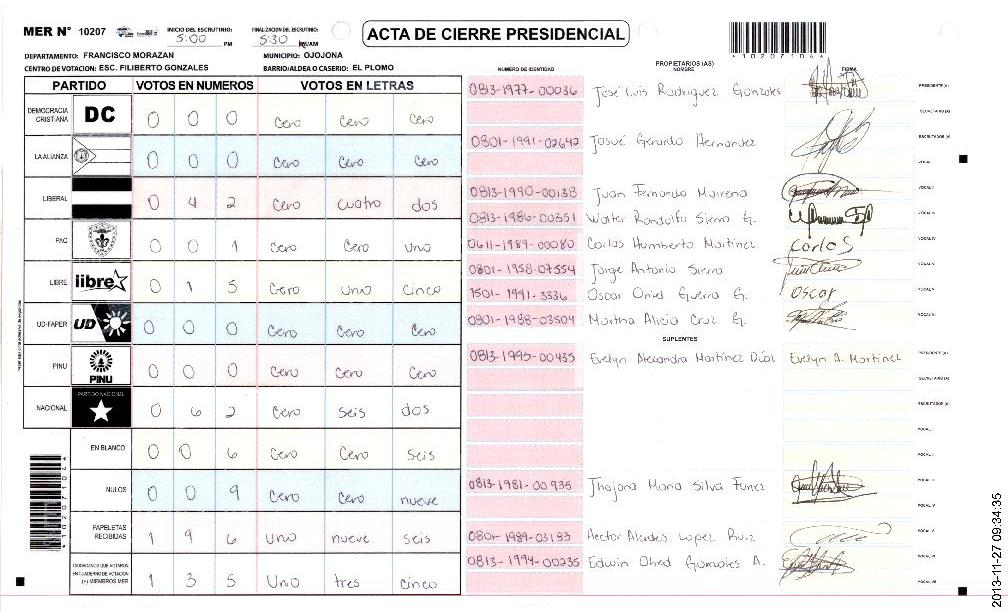 MER N° 10207
INICIO DEL ESCRUTINIO: 5:00 PM
FINALIZACION DEL ESCRUTINIO: 5:30
ACTA DE CIERRE PRESIDENCIAL
*10207104*
DEPARTAMENTO: FRANCISCO MORAZAN MUNICIPIO: OJOJONA
CENTRO DE VOTACION: ESC. FILIBERTO GONZALES BARRIO/ALDEA O CASERIO: EL PLOMO
PARTIDO VOTOS EN NUMEROS VOTOS EN LETRAS
DEMOCRACIA CRISTIANA DC 0 0 0 Cero Cero Cero
LA ALIANZA 0 0 0 Cero Cero Cero
LIBERAL 0 4 2 Cero cuatro dos
PAC 0 0 1 Cero Cero uno
LIBRE libre 0 1 5 Cero uno cinco
UD-FAPER UD 0 0 0 Cero Cero Cero
PINU PINU 0 0 0 Cero Cero Cero
NACIONAL PARTIDO NACIONAL 0 6 2 Cero seis dos
EN BLANCO 0 0 6 Cero Cero seis
NULOS 0 0 9 Cero Cero nueve
PAPELETAS RECIBIDAS 1 9 6 uno nueve seis
CIUDADANOS QUE VOTARON EN CUADERNO DE VOTACION (+) MIEMBROS MER 1 3 5 Uno tres cinco
*10207104*
NUMERO DE IDENTIDAD PROPIETARIOS (AS) NOMBRE FIRMA
0813-1977-00036 José Luis Rodriguez Gonzales PRESIDENTE (A)
SECRETARIO (A)
0801-1991-02642 Josué Gerardo Hernandez ESCRUTADOR (A)
VOCAL I
0813-1990-00138 Juan Fernando Mairena VOCAL II
0813-1986-00351 Walter Rondolfo Sierra G. VOCAL III
0611-1989-00080 Carlos Humberto Martinez Carlos VOCAL IV
0801-1958-07554 Jorge Antonio Sierra VOCAL V
1501-1991-3336 Oscar Oniel Guerra G. Oscar
0801-1988-03504 Martha Alicia Cruz G.
SUPLENTES
0813-1995-00435 Evelyn Alexandra Martínez Díaz Evelyn A. Martinez PRESIDENTE (A)
SECRETARIO (A)
ESCRUTADOR (A)
VOCAL I
VOCAL II
0813-1981-00935 Maria Silva Funez VOCAL III
VOCAL IV
0801-1989-03193 Hector Alcides Lopez Ruiz VOCAL V
0813-1994-00235 Edwin Obed Gonzales A. VOCAL VI
VOCAL VII
2013-11-27 09:34:35